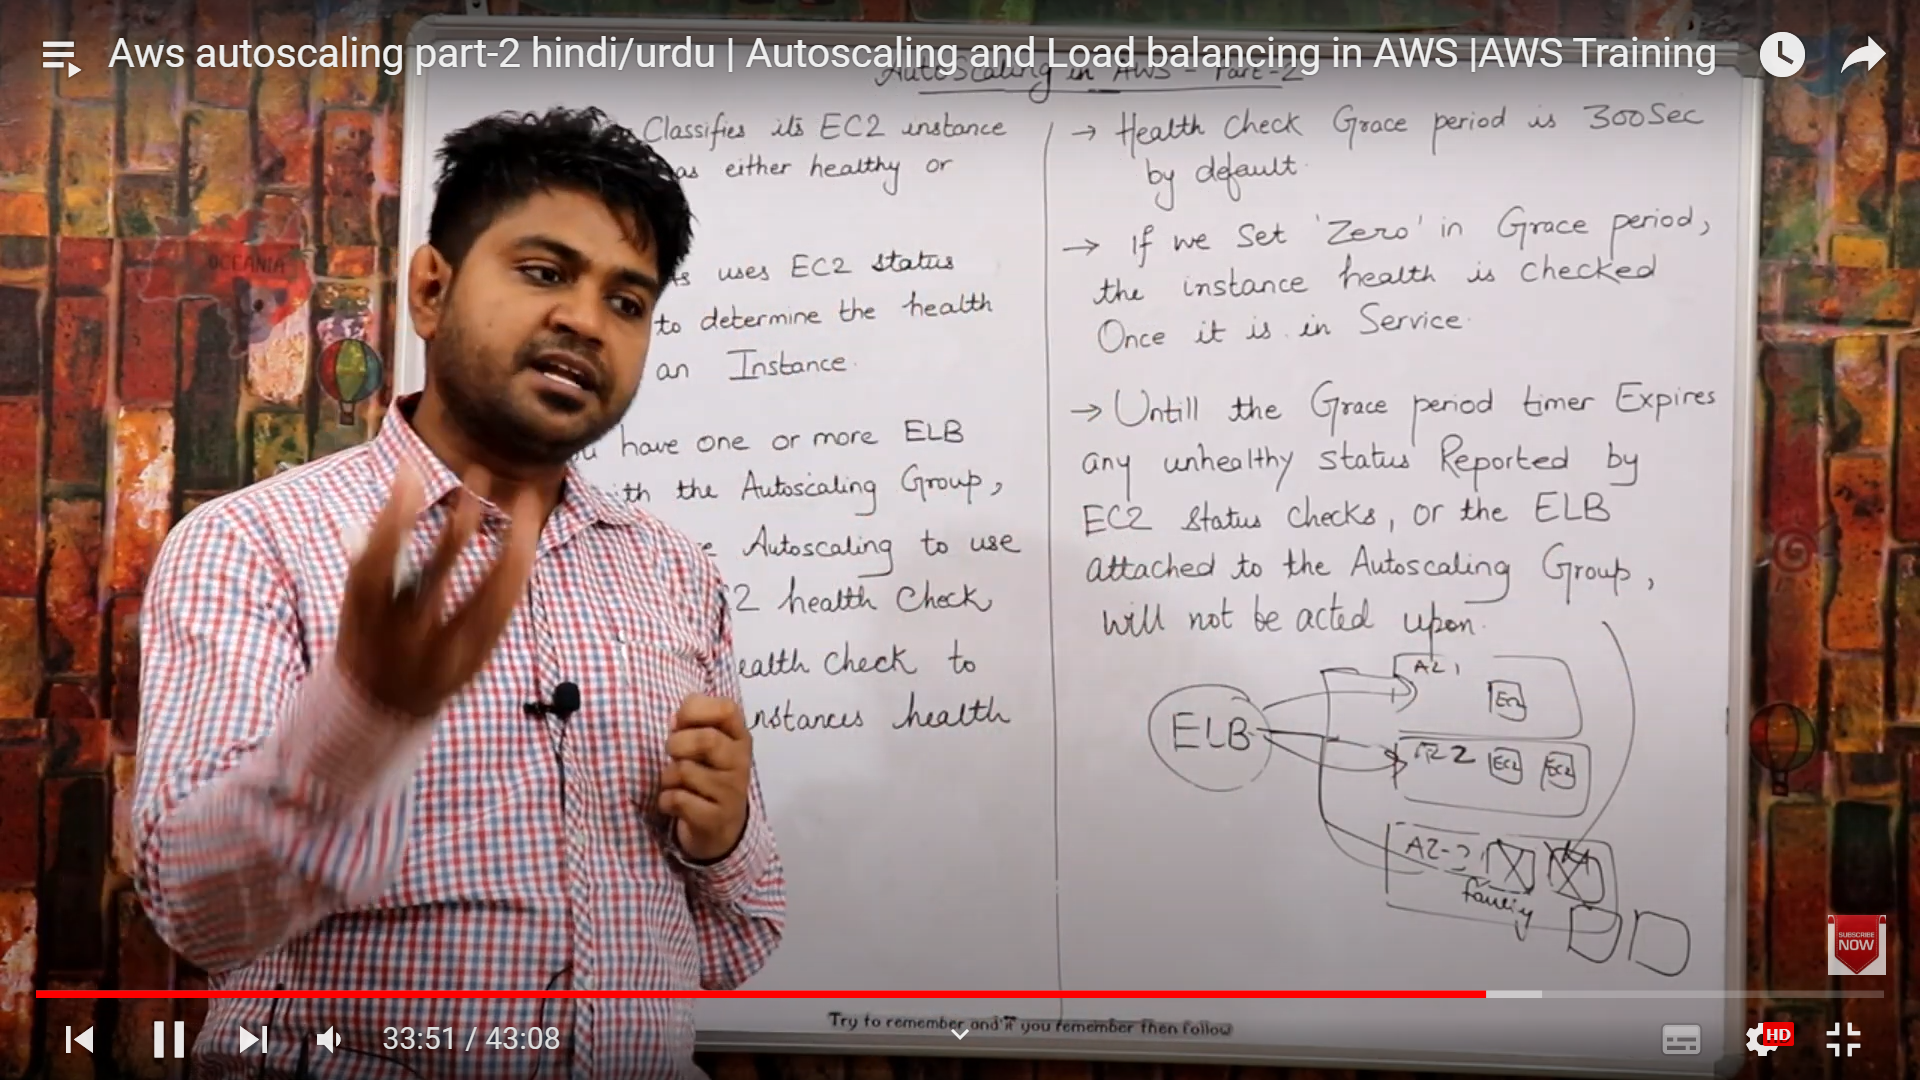 Aws autoscaling part-2 hindi/urdu | Autoscaling and Load balancing in AWS |AWS Training
AutoScaling in AWS - Part-2
Classifies its EC2 instance
as either healthy or
uses EC2 status
to determine the health
an Instance.
have one or more ELB
with the Autoscaling Group,
Autoscaling to use
2 health Check
ealth Check to
nstances health
→ Health Check Grace period is 300Sec
by default.
→ If we Set 'Zero' in Grace period,
the instance health is checked
Once it is in Service.
→ Untill the Grace period timer Expires
any unhealthy status Reported by
EC2 Status Checks, or the ELB
attached to the Autoscaling Group,
will not be acted upon.
ELB
AZ 1
EC2
AZ 2
EC2 EC2
AZ-3
OCEANIA
SUBSCRIBE
NOW
Try to remember and if you remember then follow
33:51 / 43:08
HD